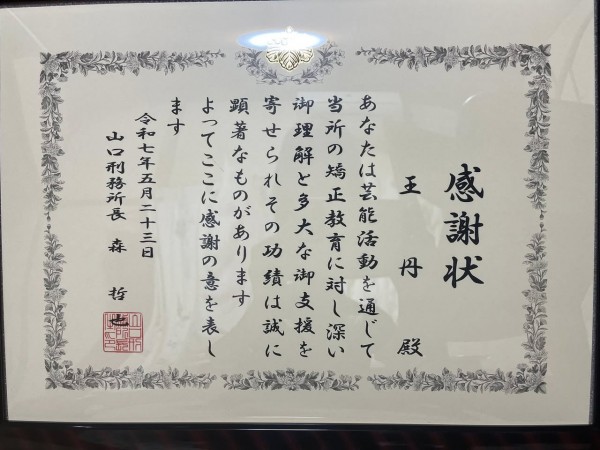 感謝状
王丹殿
あなたは芸能活動を通じて
当所の矯正教育に対し深い
御理解と多大な御支援を
寄せられその功績は誠に
顕著なものがあります
よってここに感謝の意を表し
ます
令和七年五月二十三日
山口刑務所長 森 哲也